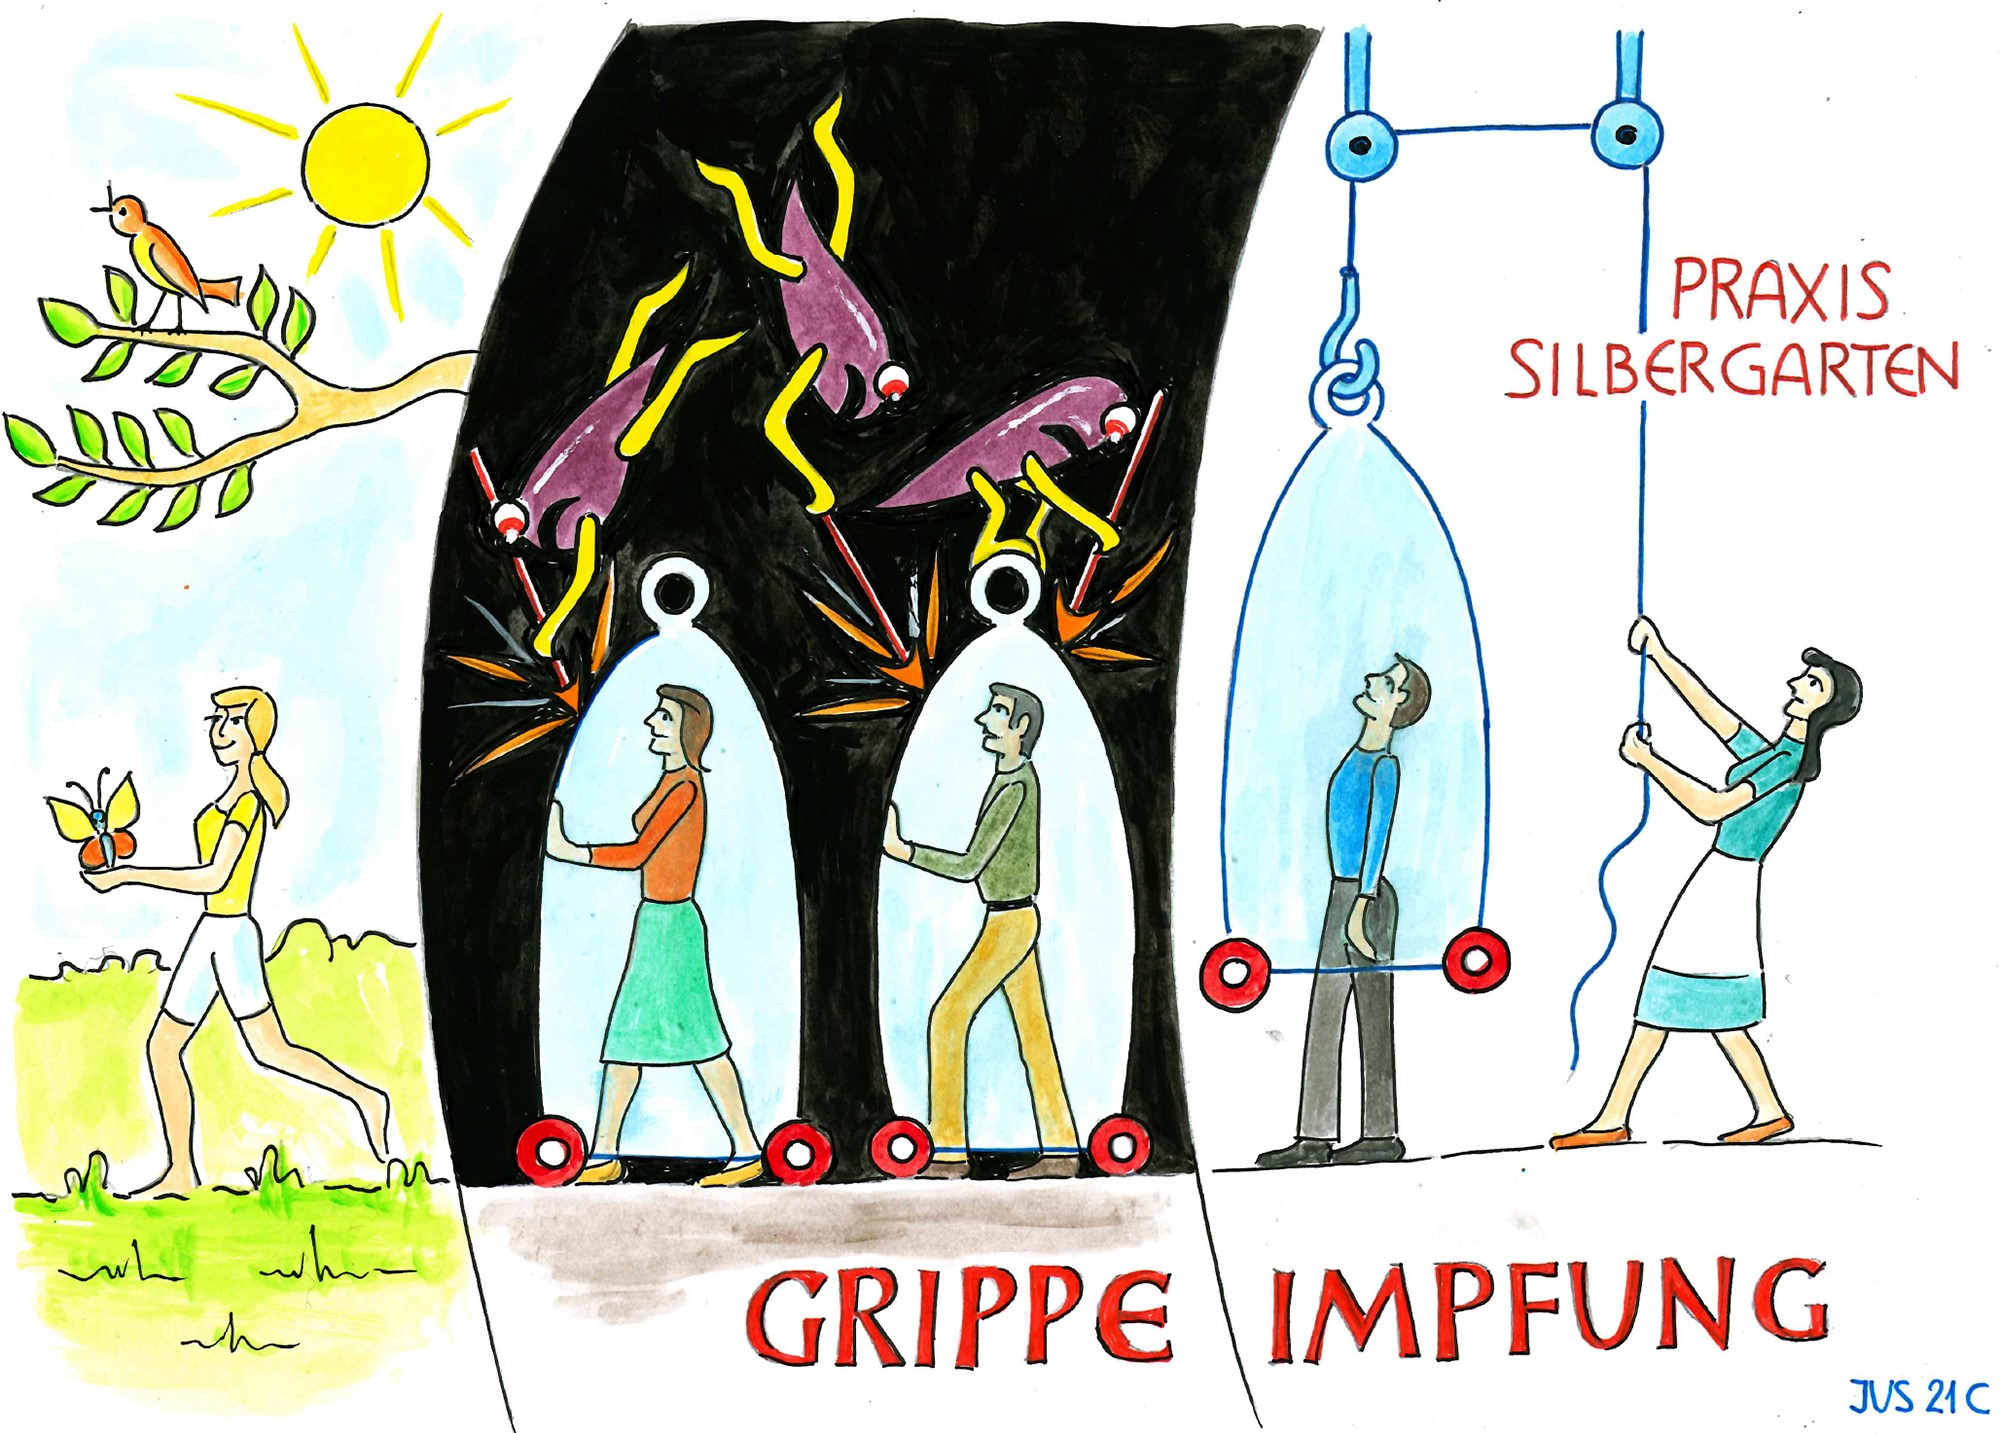 PRAXIS
SILBERGARTEN
GRIPPE IMPFUNG
JUS 21 C